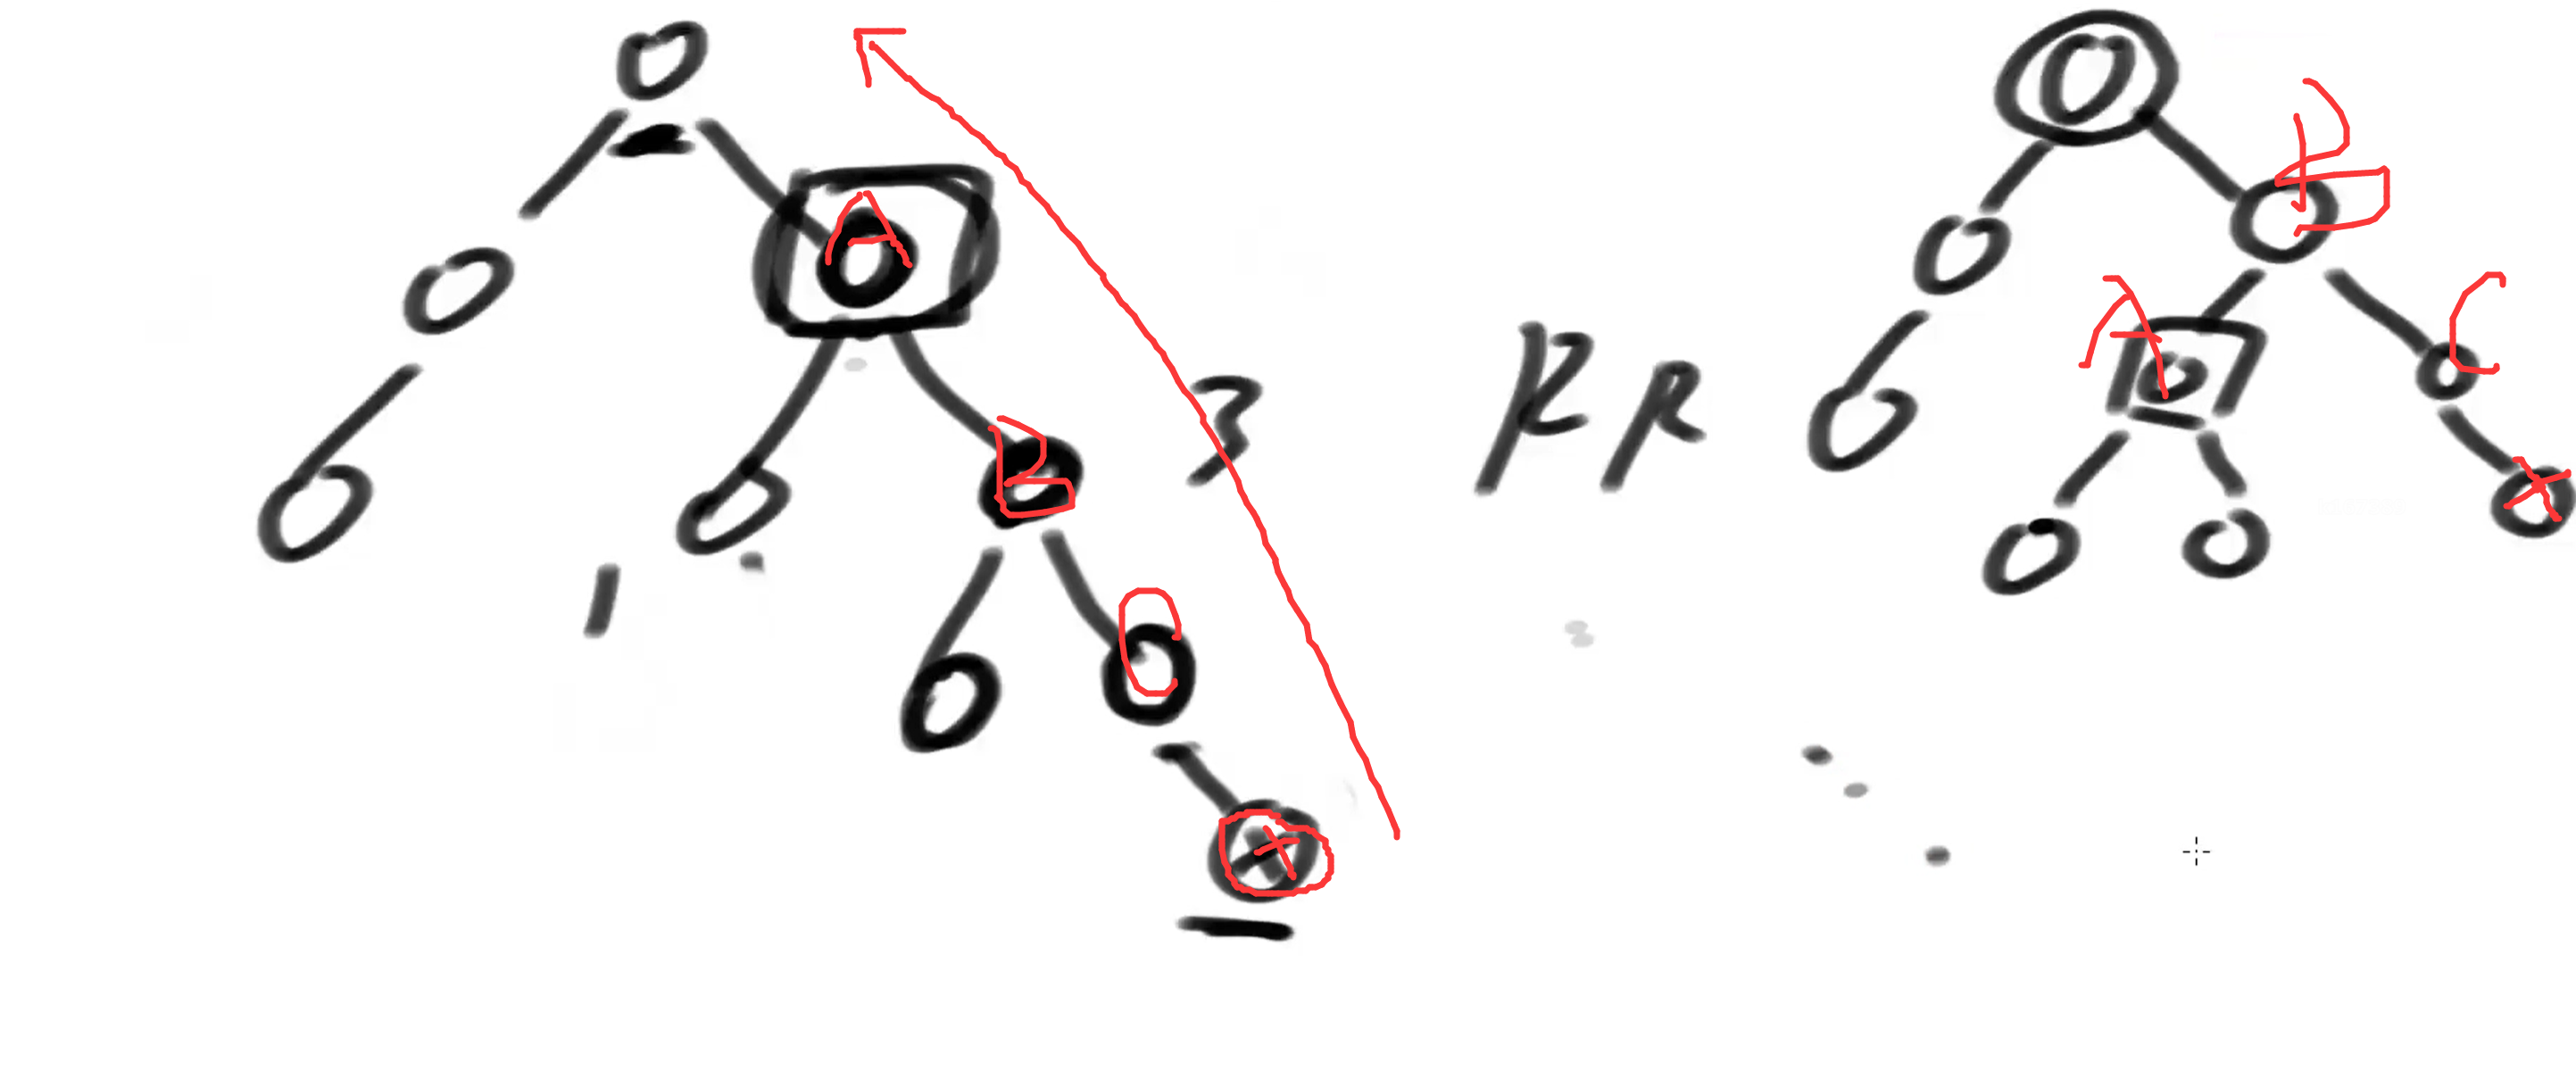 A
B
C
X
1
3
RR
B
A
C
X